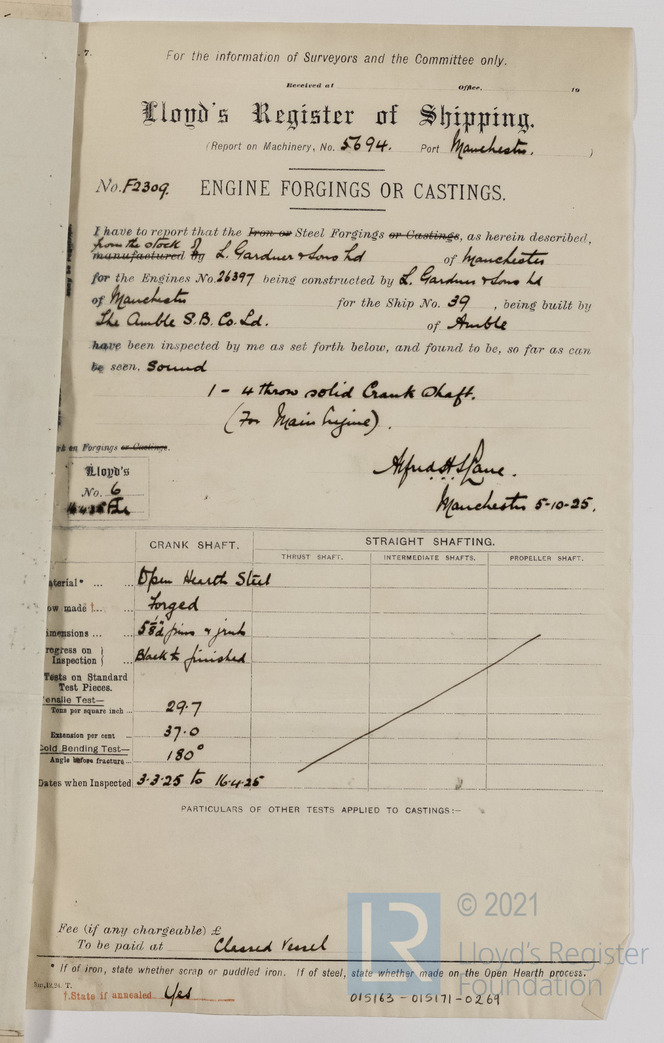 7.
For the information of Surveyors and the Committee only.
Received at Office, 19
Lloyd's Register of Shipping.
(Report on Machinery, No. 5694. Port Manchester. )
No. F2309. ENGINE FORGINGS OR CASTINGS.
I have to report that the Iron or Steel Forgings or Castings, as herein described,
from the stock of
manufactured by L. Gardner & Sons Ld of Manchester
for the Engines No. 26397 being constructed by L. Gardner & Sons Ld
of Manchester for the Ship No. 39, being built by
The Amble S.B. Co. Ld. of Amble
have been inspected by me as set forth below, and found to be, so far as can
be seen, Sound
1 - 4 throw solid Crank Shaft.
(For Main Engine).
on Forgings or Castings.
Lloyd's
No. 6
16.4.25
Manchester 5-10-25.
CRANK SHAFT. STRAIGHT SHAFTING.
THRUST SHAFT. INTERMEDIATE SHAFTS. PROPELLER SHAFT.
aterial* ... ... Open Hearth Steel
ow made †... ... Forged
imensions ... ... 5 1/8" d pins & jrnls
rogress on } Black to finished
Inspection } ...
Tests on Standard
Test Pieces.
ensile Test—
Tons per square inch ... 29.7
Extension per cent ... 37.0
Cold Bending Test—
Angle before fracture ... 180°
Dates when Inspected 3.3.25 to 16.4.25
PARTICULARS OF OTHER TESTS APPLIED TO CASTINGS:—
Fee (if any chargeable) £
To be paid at Classed Vessel
* If of iron, state whether scrap or puddled iron. If of steel, state whether made on the Open Hearth process.
†. State if annealed. Yes
015163-015171-0269
LR
© 2021
Lloyd's Register
Foundation